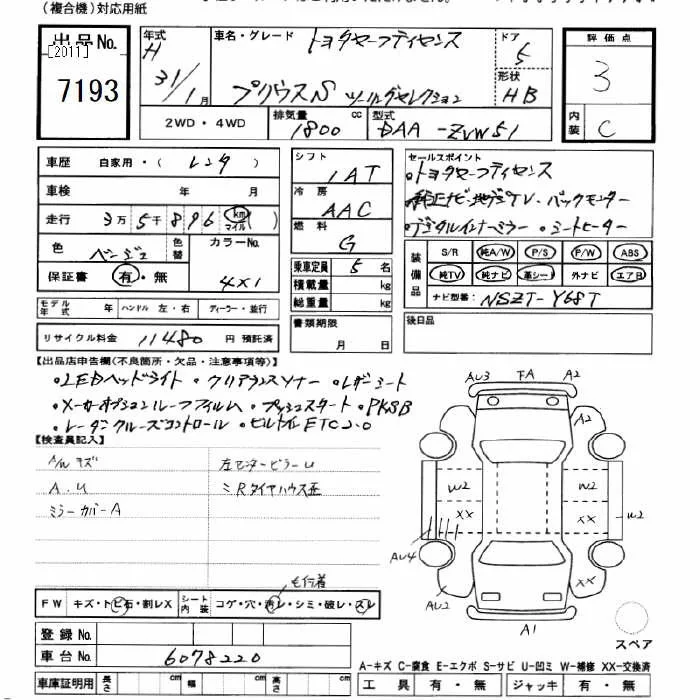 (複合機)対応用紙
出品No.
[2011]
7193
年式 H 31/1月
車名・グレード トヨタセーフティセンス
プリウスS ツーリングセレクション
ドア 5
形状 HB
2WD・4WD
排気量 1800 cc
型式 DAA-ZVW51
評価点
3
内装 C
車歴 自家用・(レンタ)
車検 年 月
走行 3万5千896 km マイル ( )
色 ベージュ 色替 カラーNo. 4X1
保証書 有・無
シフト IAT
冷房 AAC
燃料 G
乗車定員 5名
積載量 kg
総重量 kg
セールスポイント
・トヨタセーフティセンス
・純正ナビ・地デジTV・バックモニター
・デジタルインナーミラー・シートヒーター
装備品 S/R 純A/W P/S P/W ABS
純TV 純ナビ 革シート 外ナビ エアB
ナビ型番: NSZT-Y68T
モデル年式 年 ハンドル 左・右 ディーラー・並行
リサイクル料金 11480 円 預託済
書類期限 月 日
後日品
【出品店申告欄(不良箇所・欠品・注意事項等)】
・LEDヘッドライト ・クリアランスソナー ・レザーシート
・メーカーオプションルーフフィルム ・プッシュスタート ・PKSB
・レーダークルーズコントロール ・ビルトインETC2.0
【検査員記入】
A/Wキズ
A.U
ミラーカバーA
左センターピラーU
〃Rタイヤハウス歪
AU3 FA A2
A2
W2 W2
XX XX W2
AU4
AU2 XX
A1
スペア
毛付着
FW キズ・トビ石・割レX シート内装 コゲ・穴・汚レ・シミ・破レ・スレ
登録No.
車台No. 6078220
車庫証明用 長さ cm 幅 cm 高さ cm
A-キズ C-腐食 E-エクボ S-サビ U-凹ミ W-補修 XX-交換済
工具 有・無 ジャッキ 有・無